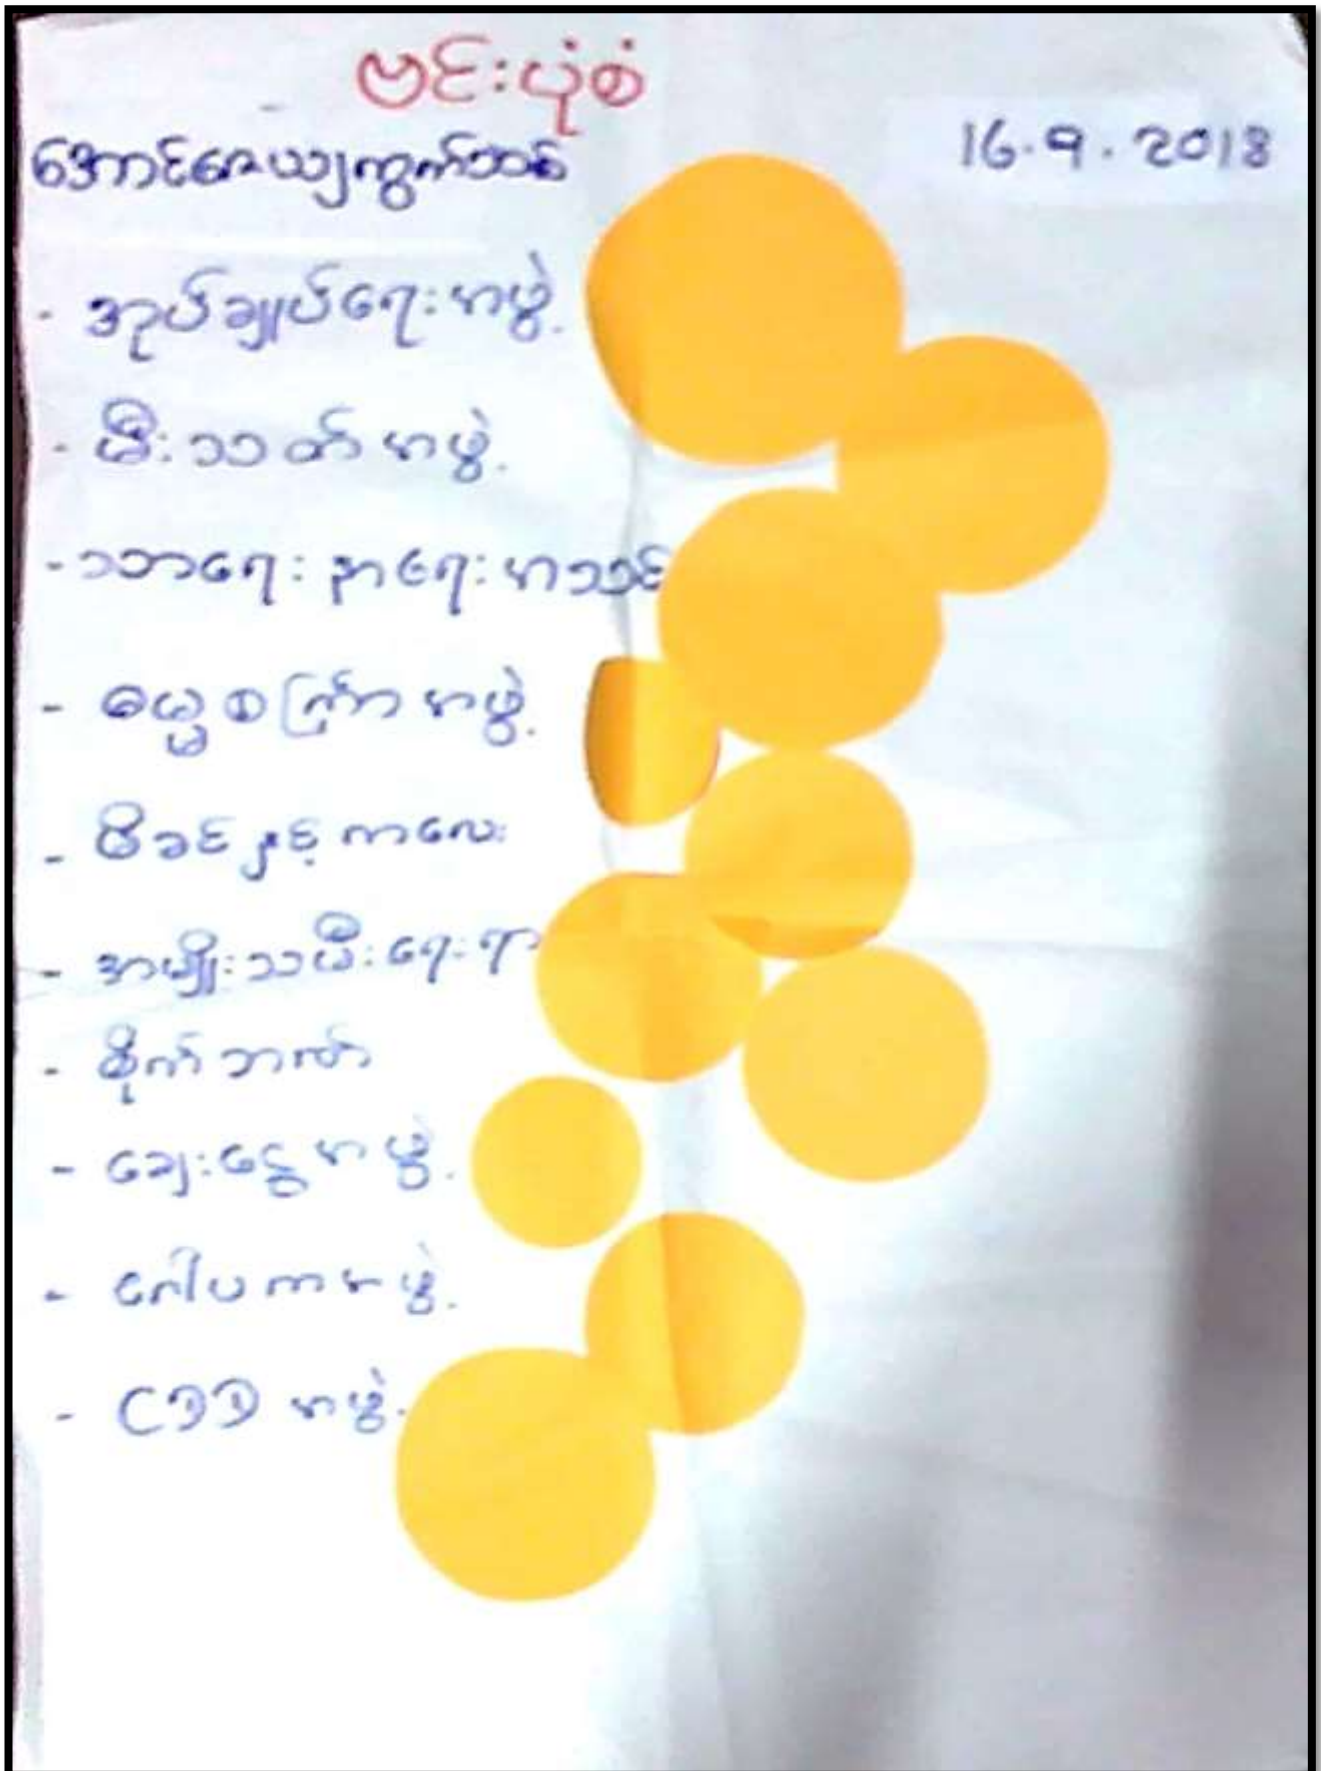 ဗင်းပုံစံ
အောင်ဇေယျကွက်သစ်
16.9.2018
- အုပ်ချုပ်ရေးအဖွဲ့
- မီးသတ်အဖွဲ့
- သာရေးနာရေးအသင်
- ဓမ္မစကြာအဖွဲ့
- မိခင်နှင့်ကလေး
- အမျိုးသမီးရေးရာ
- စိုက်ဘဏ်
- ချေးငွေအဖွဲ့
- ဂေါပကအဖွဲ့
- CDD အဖွဲ့